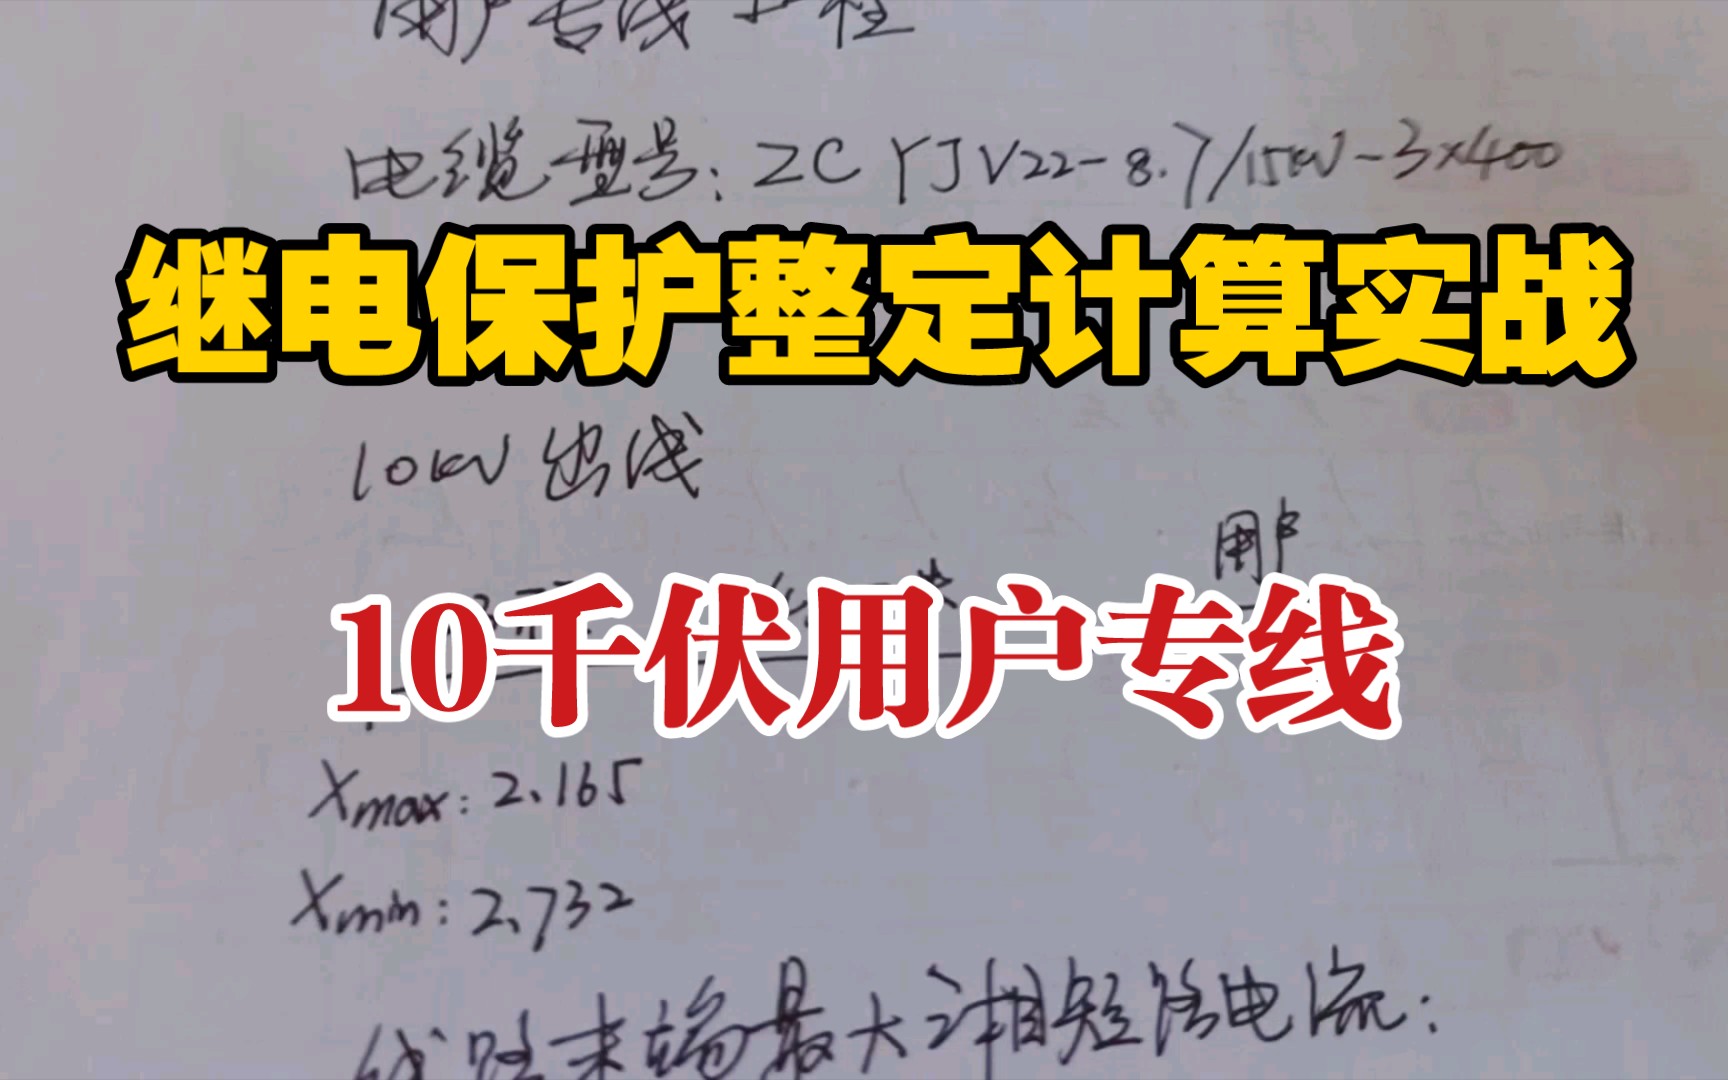 用户专线工程
电缆型号：ZC YJV22-8.7/15kV-3×400
继电保护整定计算实战
10kV 出线
用户
10千伏用户专线
Xmax：2.165
Xmin：2.732
线路末端最大三相短路电流：